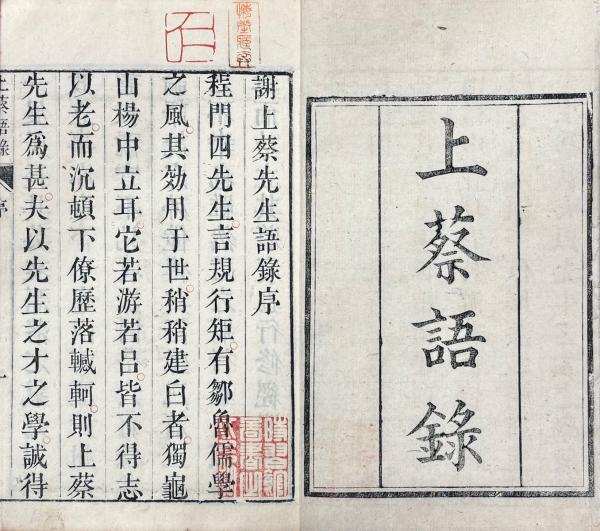 上蔡語錄
謝上蔡先生語錄序
程門四先生言規行矩有鄒魯儒學
之風其効用于世稍稍建白者獨龜
山楊中立耳它若游若呂皆不得志
以老而沉頓下僚歷落轗軻則上蔡
先生爲甚夫以先生之才之學誠得
上蔡語錄 序 一